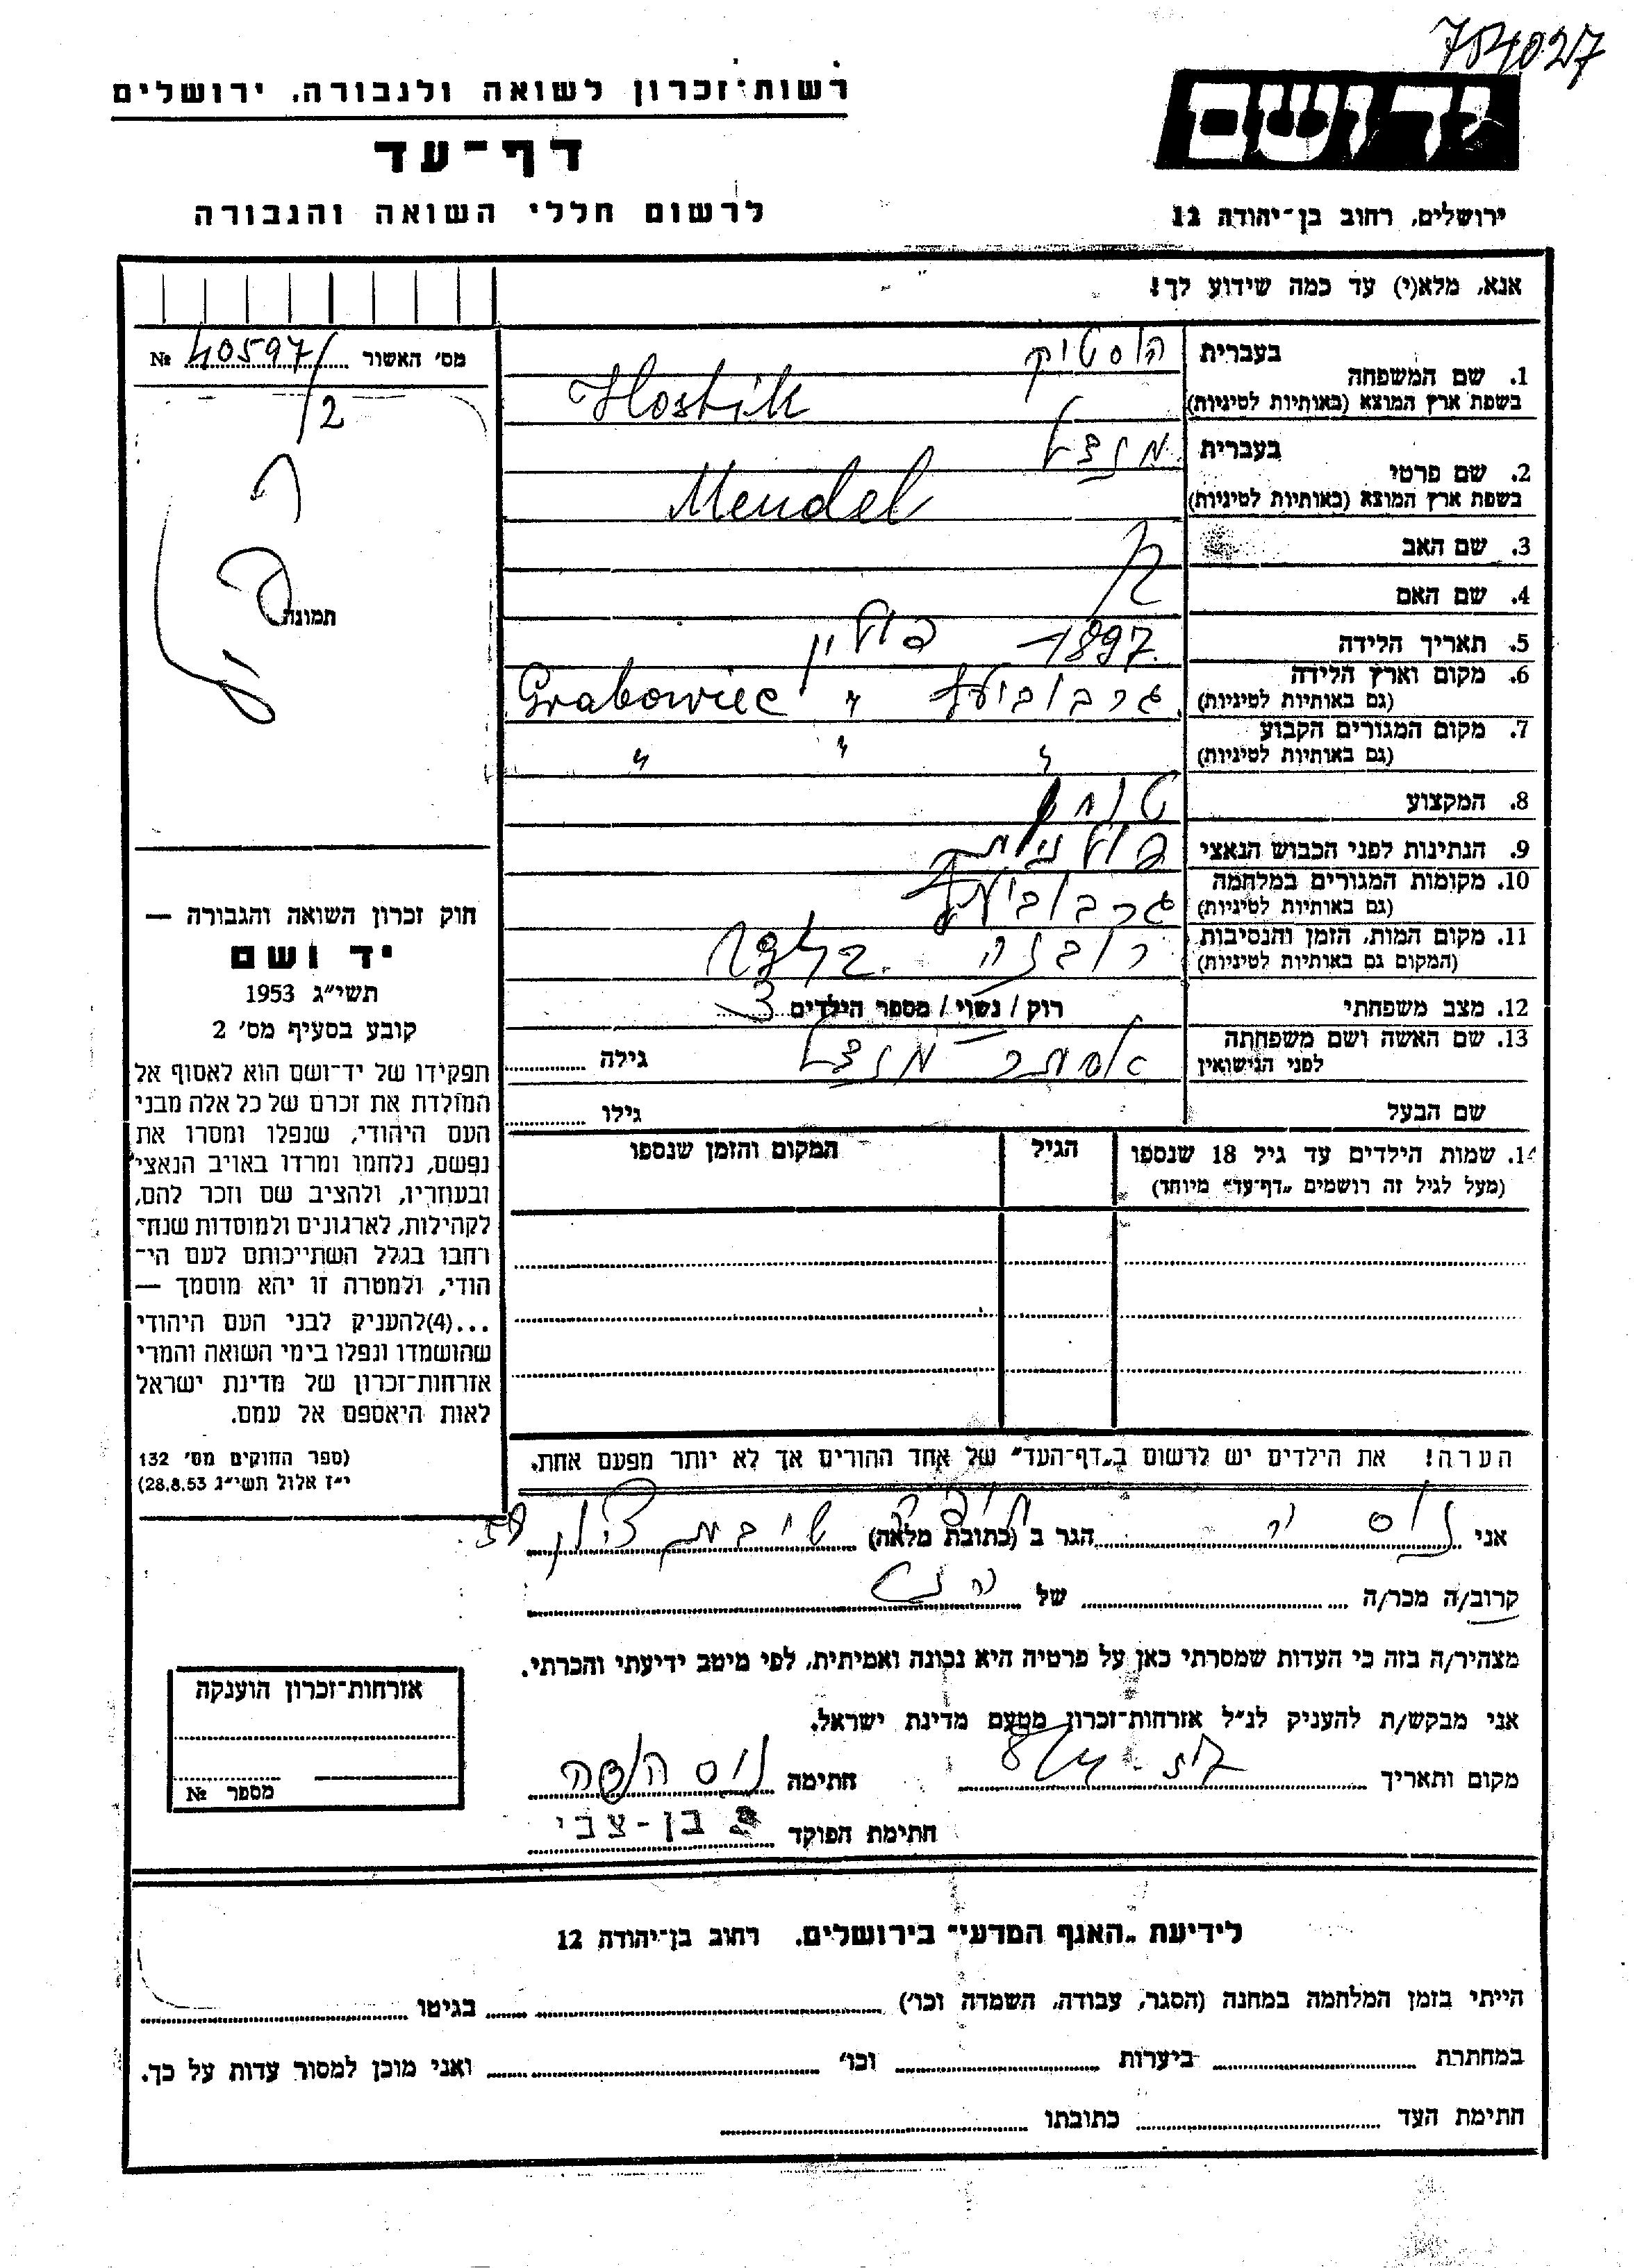 754027
רשות־זכרון לשואה ולגבורה, ירושלים
דף־עד
לרשום חללי השואה והגבורה
יד ושם
ירושלים, רחוב בן־יהודה 12
אנא, מלא(י) עד כמה שידוע לך!
מס׳ האשור 40597/2 №
תמונה
1. שם המשפחה
בעברית הוסטיק
בשפת ארץ המוצא (באותיות לטיניות) Hostik
2. שם פרטי
בעברית מנדל
בשפת ארץ המוצא (באותיות לטיניות) Mendel
3. שם האב
4. שם האם
5. תאריך הלידה 1897
6. מקום וארץ הלידה פולין
(גם באותיות לטיניות) גרבוביעץ " Grabowiec
7. מקום המגורים הקבוע
(גם באותיות לטיניות) " " "
8. המקצוע
9. הנתינות לפני הכבוש הנאצי פולנית
10. מקומות המגורים במלחמה
(גם באותיות לטיניות) גרבוביעץ
11. מקום המות, הזמן והנסיבות
(המקום גם באותיות לטיניות)
12. מצב משפחתי רוק / נשוי / מספר הילדים 3
13. שם האשה ושם משפחתה
לפני הנישואין אסתר מנדל גילה
שם הבעל גילו
14. שמות הילדים עד גיל 18 שנספו הגיל המקום והזמן שנספו
(מעל לגיל זה רושמים „דף־עד״ מיוחד)
הערה! את הילדים יש לרשום ב„דף־העד״ של אחד ההורים אך לא יותר מפעם אחת.
חוק זכרון השואה והגבורה —
יד ושם
תשי״ג 1953
קובע בסעיף מס׳ 2
תפקידו של יד־ושם הוא לאסוף אל
המולדת את זכרם של כל אלה מבני
העם היהודי, שנפלו ומסרו את
נפשם, נלחמו ומרדו באויב הנאצי
ובעוזריו, ולהציב שם וזכר להם,
לקהילות, לארגונים ולמוסדות שנח־
רחבו בגלל השתייכותם לעם הי־
הודי, ולמטרה זו יהא מוסמך —
...(4)להעניק לבני העם היהודי
שהושמדו ונפלו בימי השואה והמרי
אזרחות־זכרון של מדינת ישראל
לאות היאספם אל עמם.
(ספר החוקים מס׳ 132
י״ז אלול תשי״ג 28.8.53)
אני הגר ב (כתובת מלאה)
קרוב/ה מכר/ה של
מצהיר/ה בזה כי העדות שמסרתי כאן על פרטיה היא נכונה ואמיתית, לפי מיטב ידיעתי והכרתי.
אני מבקש/ת להעניק לנ״ל אזרחות־זכרון מטעם מדינת ישראל.
מקום ותאריך חתימה
חתימת הפוקד בן-צבי
אזרחות־זכרון הוענקה
מספר №
לידיעת „האגף המדעי״ בירושלים. רחוב בן־יהודה 12
הייתי בזמן המלחמה במחנה (הסגר, עבודה, השמדה וכו׳) בגיטו
במחתרת ביערות וכו׳ ואני מוכן למסור עדות על כך.
חתימת העד כתובתו